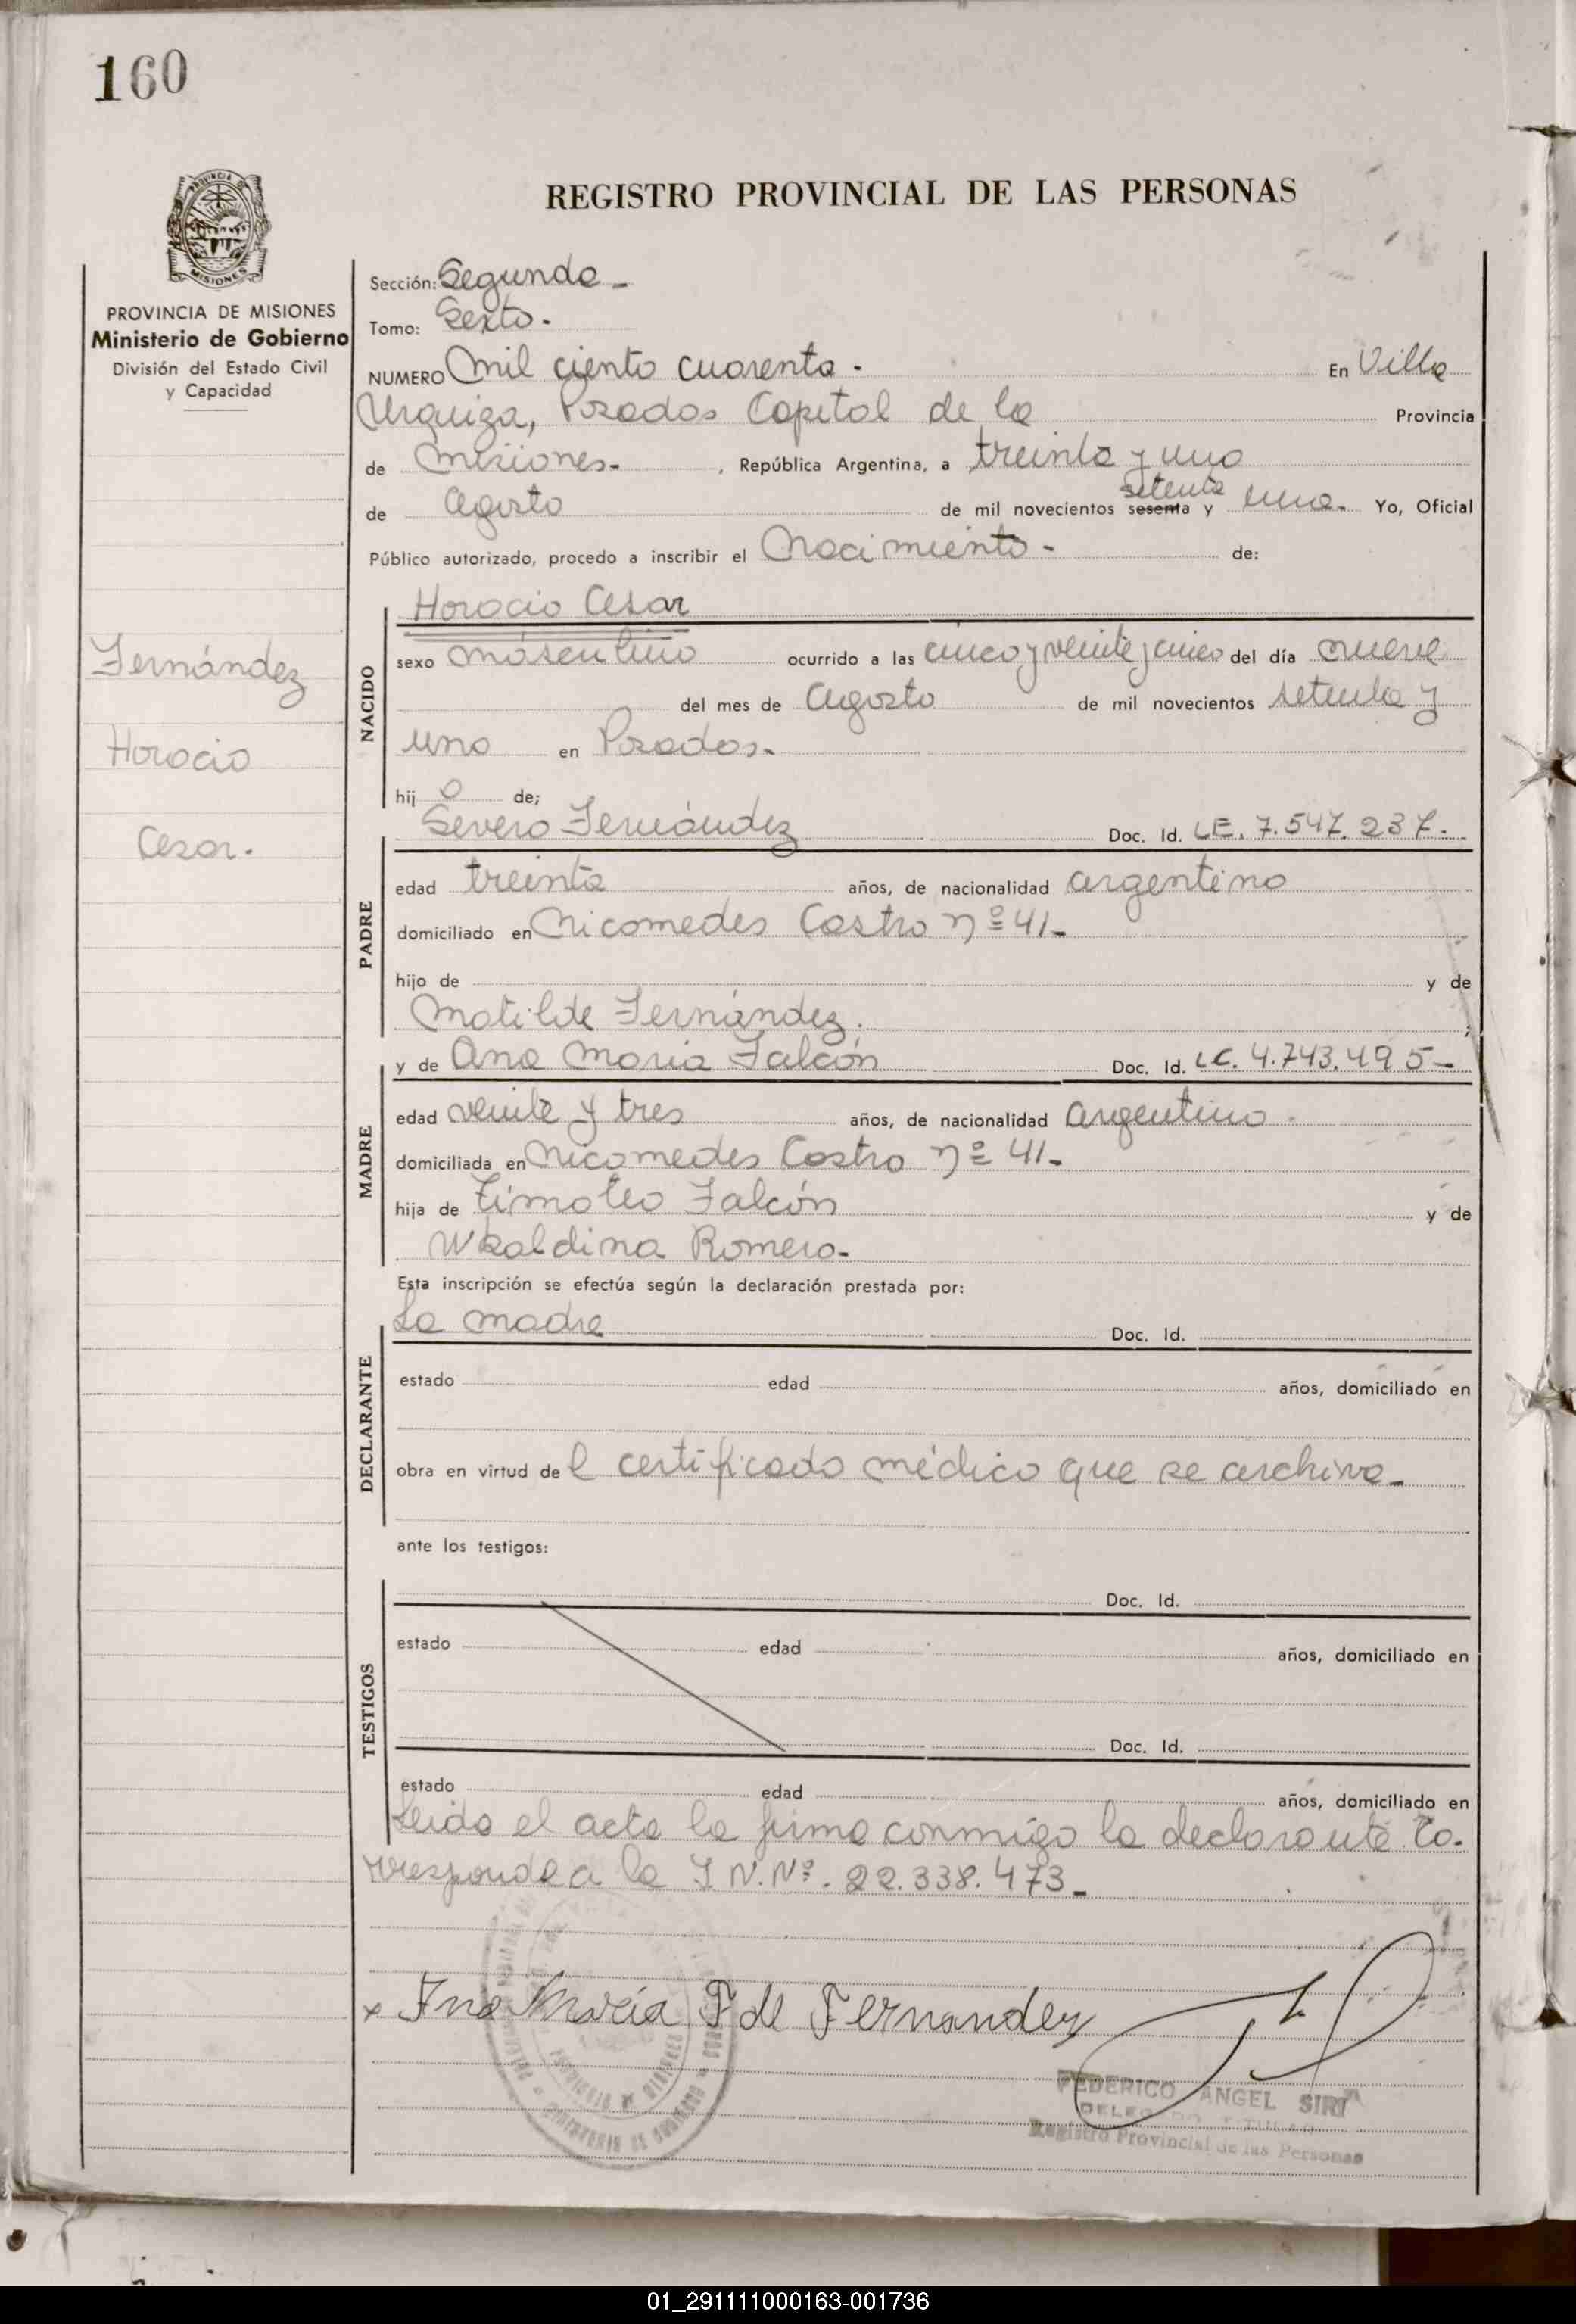 160
REGISTRO PROVINCIAL DE LAS PERSONAS
PROVINCIA DE MISIONES
Ministerio de Gobierno
División del Estado Civil
y Capacidad
Fernández
Horacio
Cesar.
Sección: Segunda -
Tomo: Sexto.
NUMERO Mil ciento cuarenta. En Villa
Urquiza, Posadas Capital de la Provincia
de Misiones. , República Argentina, a treinta y uno
de Agosto de mil novecientos sesenta setenta y uno. Yo, Oficial
Público autorizado, procedo a inscribir el Nacimiento - de:
Horacio Cesar
NACIDO
sexo másculino ocurrido a las cinco y veinte y cinco del día nueve
del mes de Agosto de mil novecientos setenta y
uno en Posadas.
hij o de;
Severo Fernández Doc. Id. LE. 7.547.237.
PADRE
edad treinta años, de nacionalidad argentino
domiciliado en Nicomedes Castro nº 41-
hijo de y de
Matilde Fernández.
y de Ana María Falcón Doc. Id. LC. 4.743.495-
MADRE
edad veinte y tres años, de nacionalidad argentina.
domiciliada en Nicomedes Castro nº 41-
hija de Timoteo Falcón y de
Romero-
Esta inscripción se efectúa según la declaración prestada por:
La madre Doc. Id.
DECLARANTE
estado edad años, domiciliado en
obra en virtud de l certificado médico que se archiva-
ante los testigos:
Doc. Id.
TESTIGOS
estado edad años, domiciliado en
Doc. Id.
estado edad años, domiciliado en
Leida el acta la firma conmigo la declarante. Co-
rresponde a la I N. Nº. 22.338.473-
x Ana María F de Fernandez
FEDERICO ANGEL SIRI
DELEGADO TITULAR
Registro Provincial de las Personas
01_291111000163-001736